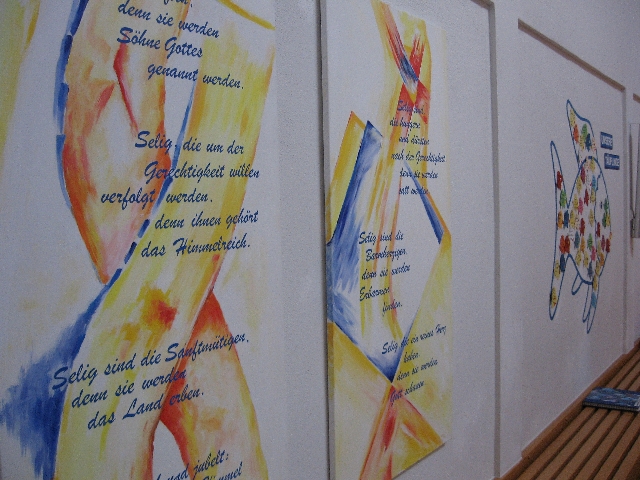 denn sie werden
Söhne Gottes
genannt werden.
Selig, die um der
Gerechtigkeit willen
verfolgt werden,
denn ihnen gehört
das Himmelreich.
Selig sind die Sanftmütigen,
denn sie werden
das Land erben.
jubelt:
Himmel
Selig sind,
die hungern
und dürsten
nach der Gerechtigkeit
denn sie werden
satt werden.
Selig sind die
Barmherzigen,
denn sie werden
Erbarmen
finden.
Selig die ein reines Herz
haben
denn sie werden
Gott schauen